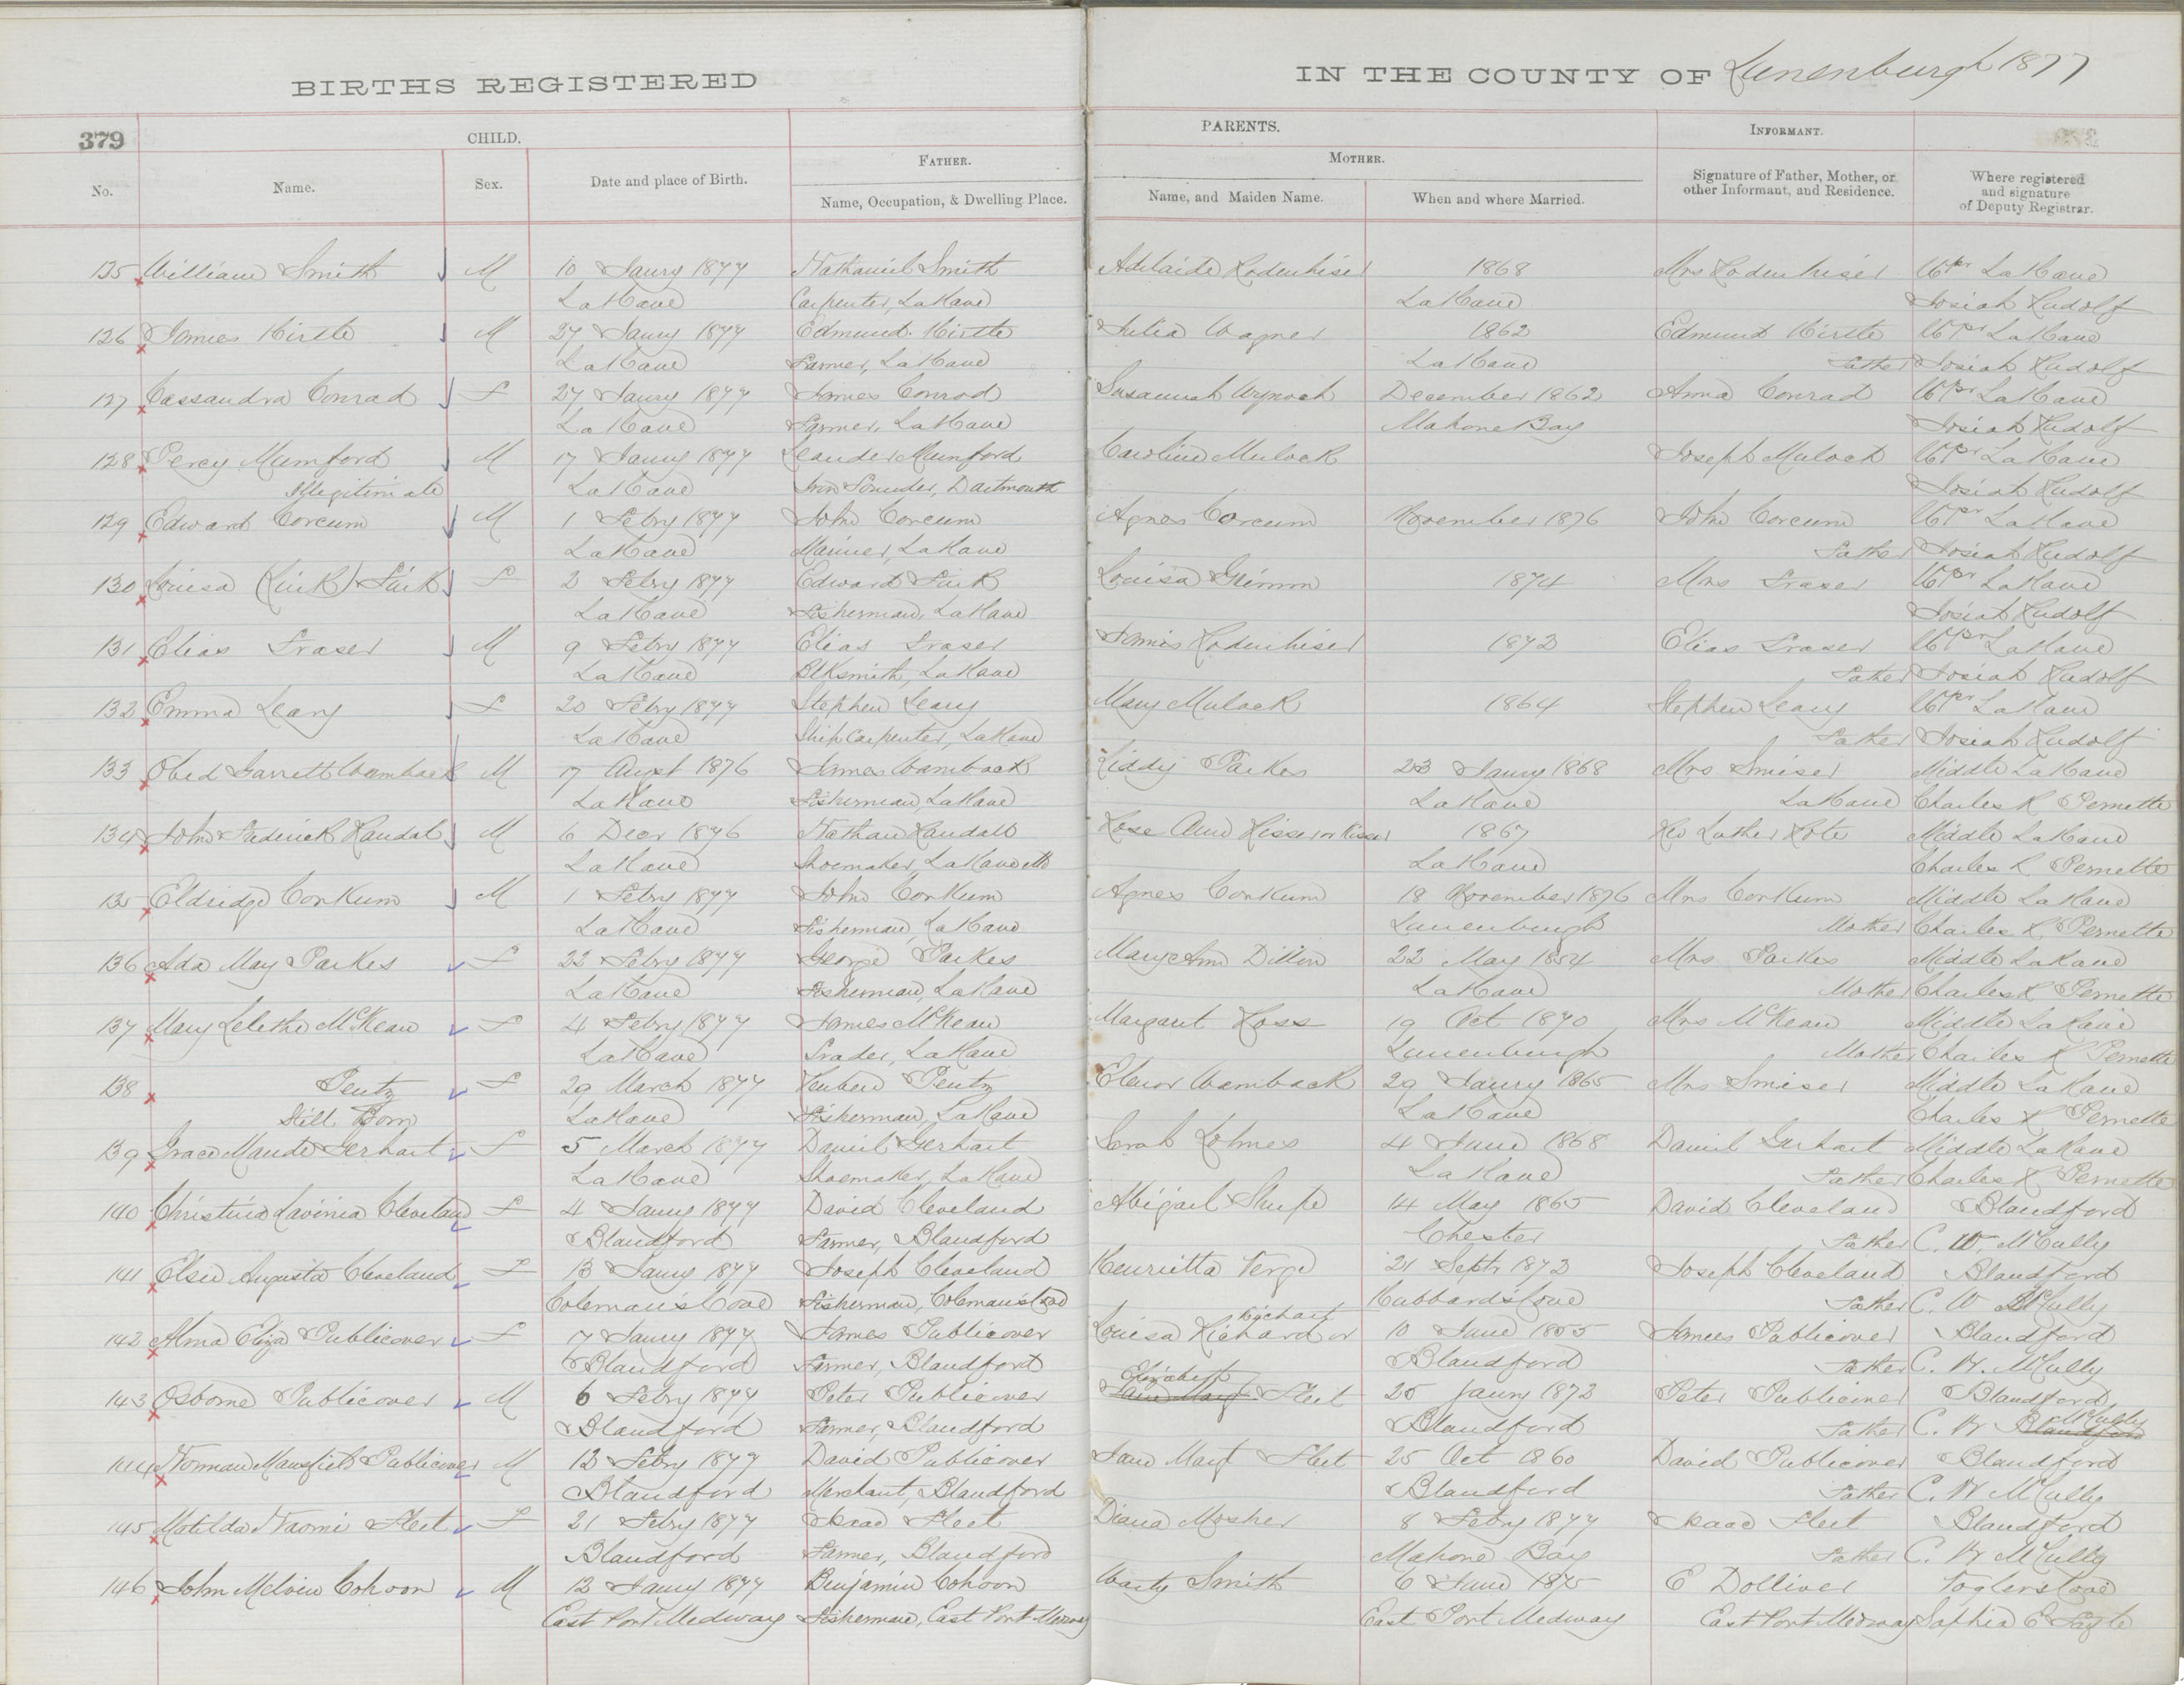 BIRTHS REGISTERED IN THE COUNTY OF Lunenburgh 1877
379 CHILD. PARENTS. INFORMANT.
FATHER. MOTHER.
No. Name. Sex. Date and place of Birth. Name, Occupation, & Dwelling Place. Name, and Maiden Name. When and where Married. Signature of Father, Mother, or other Informant, and Residence. Where registered and signature of Deputy Registrar.
125 William Smith M 10 Jany 1877 Nathaniel Smith Adelaide Rodenhiser 1868 Mrs Rodenhiser Upr LaHave
LaHave Carpenter, LaHave LaHave Josiah Rudolf
126 James Hirtle M 27 Jany 1877 Edmund Hirtle Julia Wagner 1862 Edmund Hirtle Upr LaHave
LaHave Farmer, LaHave LaHave Father Josiah Rudolf
127 Cassandra Conrad F 27 Jany 1877 James Conrod Susannah Wynoch December 1862 Anna Conrad Upr LaHave
LaHave Farmer, LaHave Mahone Bay Josiah Rudolf
128 Percy Mumford M 17 Jany 1877 Leander Mumford Caroline Mulock Joseph Mulock Upr LaHave
Illegitimate LaHave Iron Founder, Dartmouth Josiah Rudolf
129 Edward Corcum M 1 Feby 1877 John Corcum Agnes Corcum November 1876 John Corcum Upr LaHave
LaHave Mariner, LaHave Father Josiah Rudolf
130 Louisa (Zuik) Fuik F 2 Feby 1877 Edward Fuik Louisa Grimm 1874 Mrs Fraser Upr LaHave
LaHave Fisherman, LaHave Josiah Rudolf
131 Elias Fraser M 9 Feby 1877 Elias Fraser Rodenhiser 1872 Elias Fraser Upr LaHave
LaHave Blksmith, LaHave Father Josiah Rudolf
132 Emma Leary F 20 Feby 1877 Stephen Leary Mary Mulock 1864 Stephen Leary Upr LaHave
LaHave Ship Carpenter, LaHave Father Josiah Rudolf
133 Obed Garrett Wamback M 17 Augst 1876 James Wamback Liddy Parkes 23 Jany 1868 Mrs Smiser Middle LaHave
LaHave Fisherman, LaHave LaHave LaHave Charles R Pernette
134 John Frederick Randal M 6 Decr 1876 Nathan Randall Rose Ann Risser or Kisser 1867 Rev Luther Rote Middle LaHave
LaHave Shoemaker, LaHave LaHave Charles R Pernette
135 Eldridge Corkum M 1 Feby 1877 John Corkum Agnes Corkum 18 November 1876 Mrs Corkum Middle LaHave
LaHave Fisherman, LaHave Lunenburgh Mother Charles R Pernette
136 Ada May Parkes F 22 Feby 1877 George Parkes Mary Ann Dillon 22 May 1854 Mrs Parkes Middle LaHave
LaHave Fisherman, LaHave LaHave Mother Charles R Pernette
137 Mary Lelethe McKean F 4 Feby 1877 James McKean Margaret Ross 19 Oct 1870 Mrs McKean Middle LaHave
LaHave Trader, LaHave Lunenburgh Mother Charles R Pernette
138 Pentz F 29 March 1877 Reuben Pentz Elenor Wamback 29 Jany 1865 Mrs Smiser Middle LaHave
Still Born LaHave Fisherman, LaHave LaHave Charles R Pernette
139 Grace Maude Gerhart F 5 March 1877 Daniel Gerhart Sarah Lohnes 4 June 1868 Daniel Gerhart Middle LaHave
LaHave Shoemaker, LaHave LaHave Father Charles R Pernette
140 Christina Lavinia Cleveland F 4 Jany 1877 David Cleveland Abigail Shupe 14 May 1865 David Cleveland Blandford
Blandford Farmer, Blandford Chester Father C. W. McCully
141 Elsie Augusta Cleveland F 13 Jany 1877 Joseph Cleveland Henrietta Verge 21 Septr 1872 Joseph Cleveland Blandford
Coleman's Cove Fisherman, Coleman's Cove Hubbard's Cove Father C. W McCully
142 Alma Eliza Publicover F 17 Jany 1877 James Publicover Louisa Richard or Richart 10 June 1855 James Publicover Blandford
Blandford Farmer, Blandford Blandford Father C. W. McCully
143 Osborne Publicover M 6 Feby 1877 Peter Publicover Jane Mary Elizabeth Fleet 25 Jany 1872 Peter Publicover Blandford
Blandford Farmer, Blandford Blandford Father C. W Blandford McCully
144 Norman Mansfield Publicover M 12 Feby 1877 David Publicover Jane Mary Fleet 25 Oct 1860 David Publicover Blandford
Blandford Merchant, Blandford Blandford Father C. W McCully
145 Matilda Naomi Fleet F 21 Feby 1877 Isaac Fleet Diana Mosher 8 Feby 1877 Isaac Fleet Blandford
Blandford Farmer, Blandford Mahone Bay Father C. W McCully
146 John Melvin Cohoon M 12 Jany 1877 Benjamin Cohoon Smith 6 June 1875 E Dolliver Voglers Cove
East Port Medway Fisherman, East Port Medway East Port Medway East Port Medway Sophia E